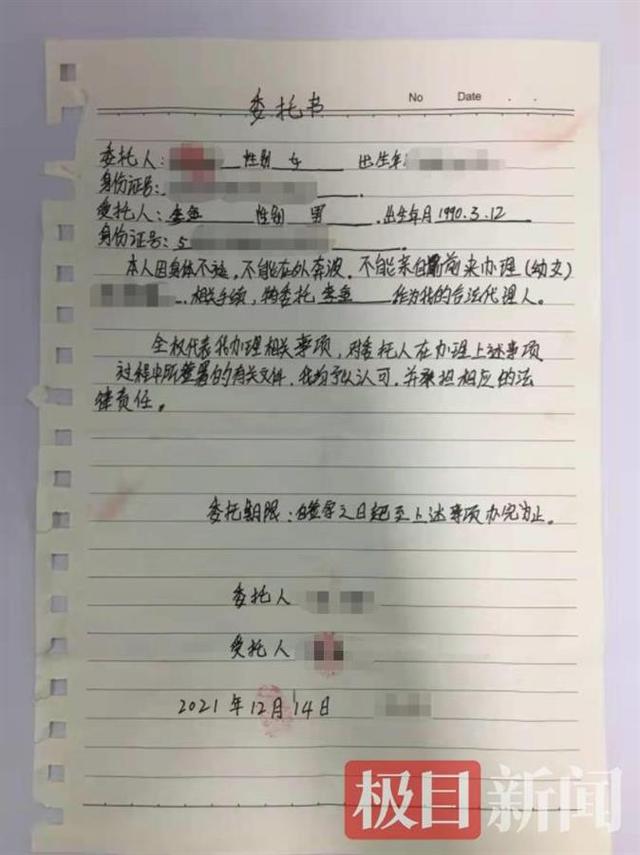 No Date . .
委托书
委托人: 性别 女 出生年
身份证号:
受托人: 李鱼 性别 男 出生年月 1990.3.12
身份证号: 5
本人因身体不适,不能在外奔波,不能亲自前来办理(幼女)
相关手续,特委托 李鱼 作为我的合法代理人。
全权代表我办理相关事项,对委托人在办理上述事项
过程中所签署的有关文件,我均予以认可,并承担相应的法
律责任。
委托期限:自签字之日起至上述事项办完为止。
委托人
受托人
2021年12月14日
极目新闻